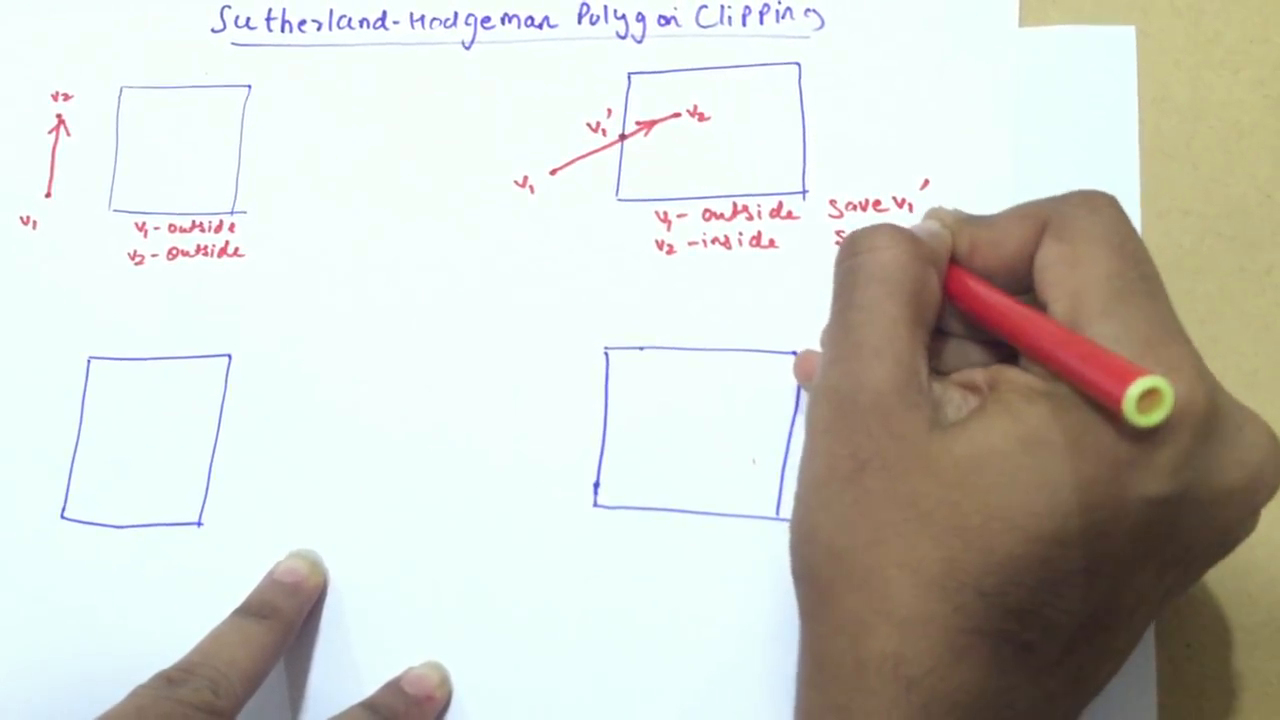 Sutherland-Hodgeman Polygon Clipping
v2
v1
v1 - outside
v2 - outside
v1'
v2
v1
v1 - outside
v2 - inside
save v1'